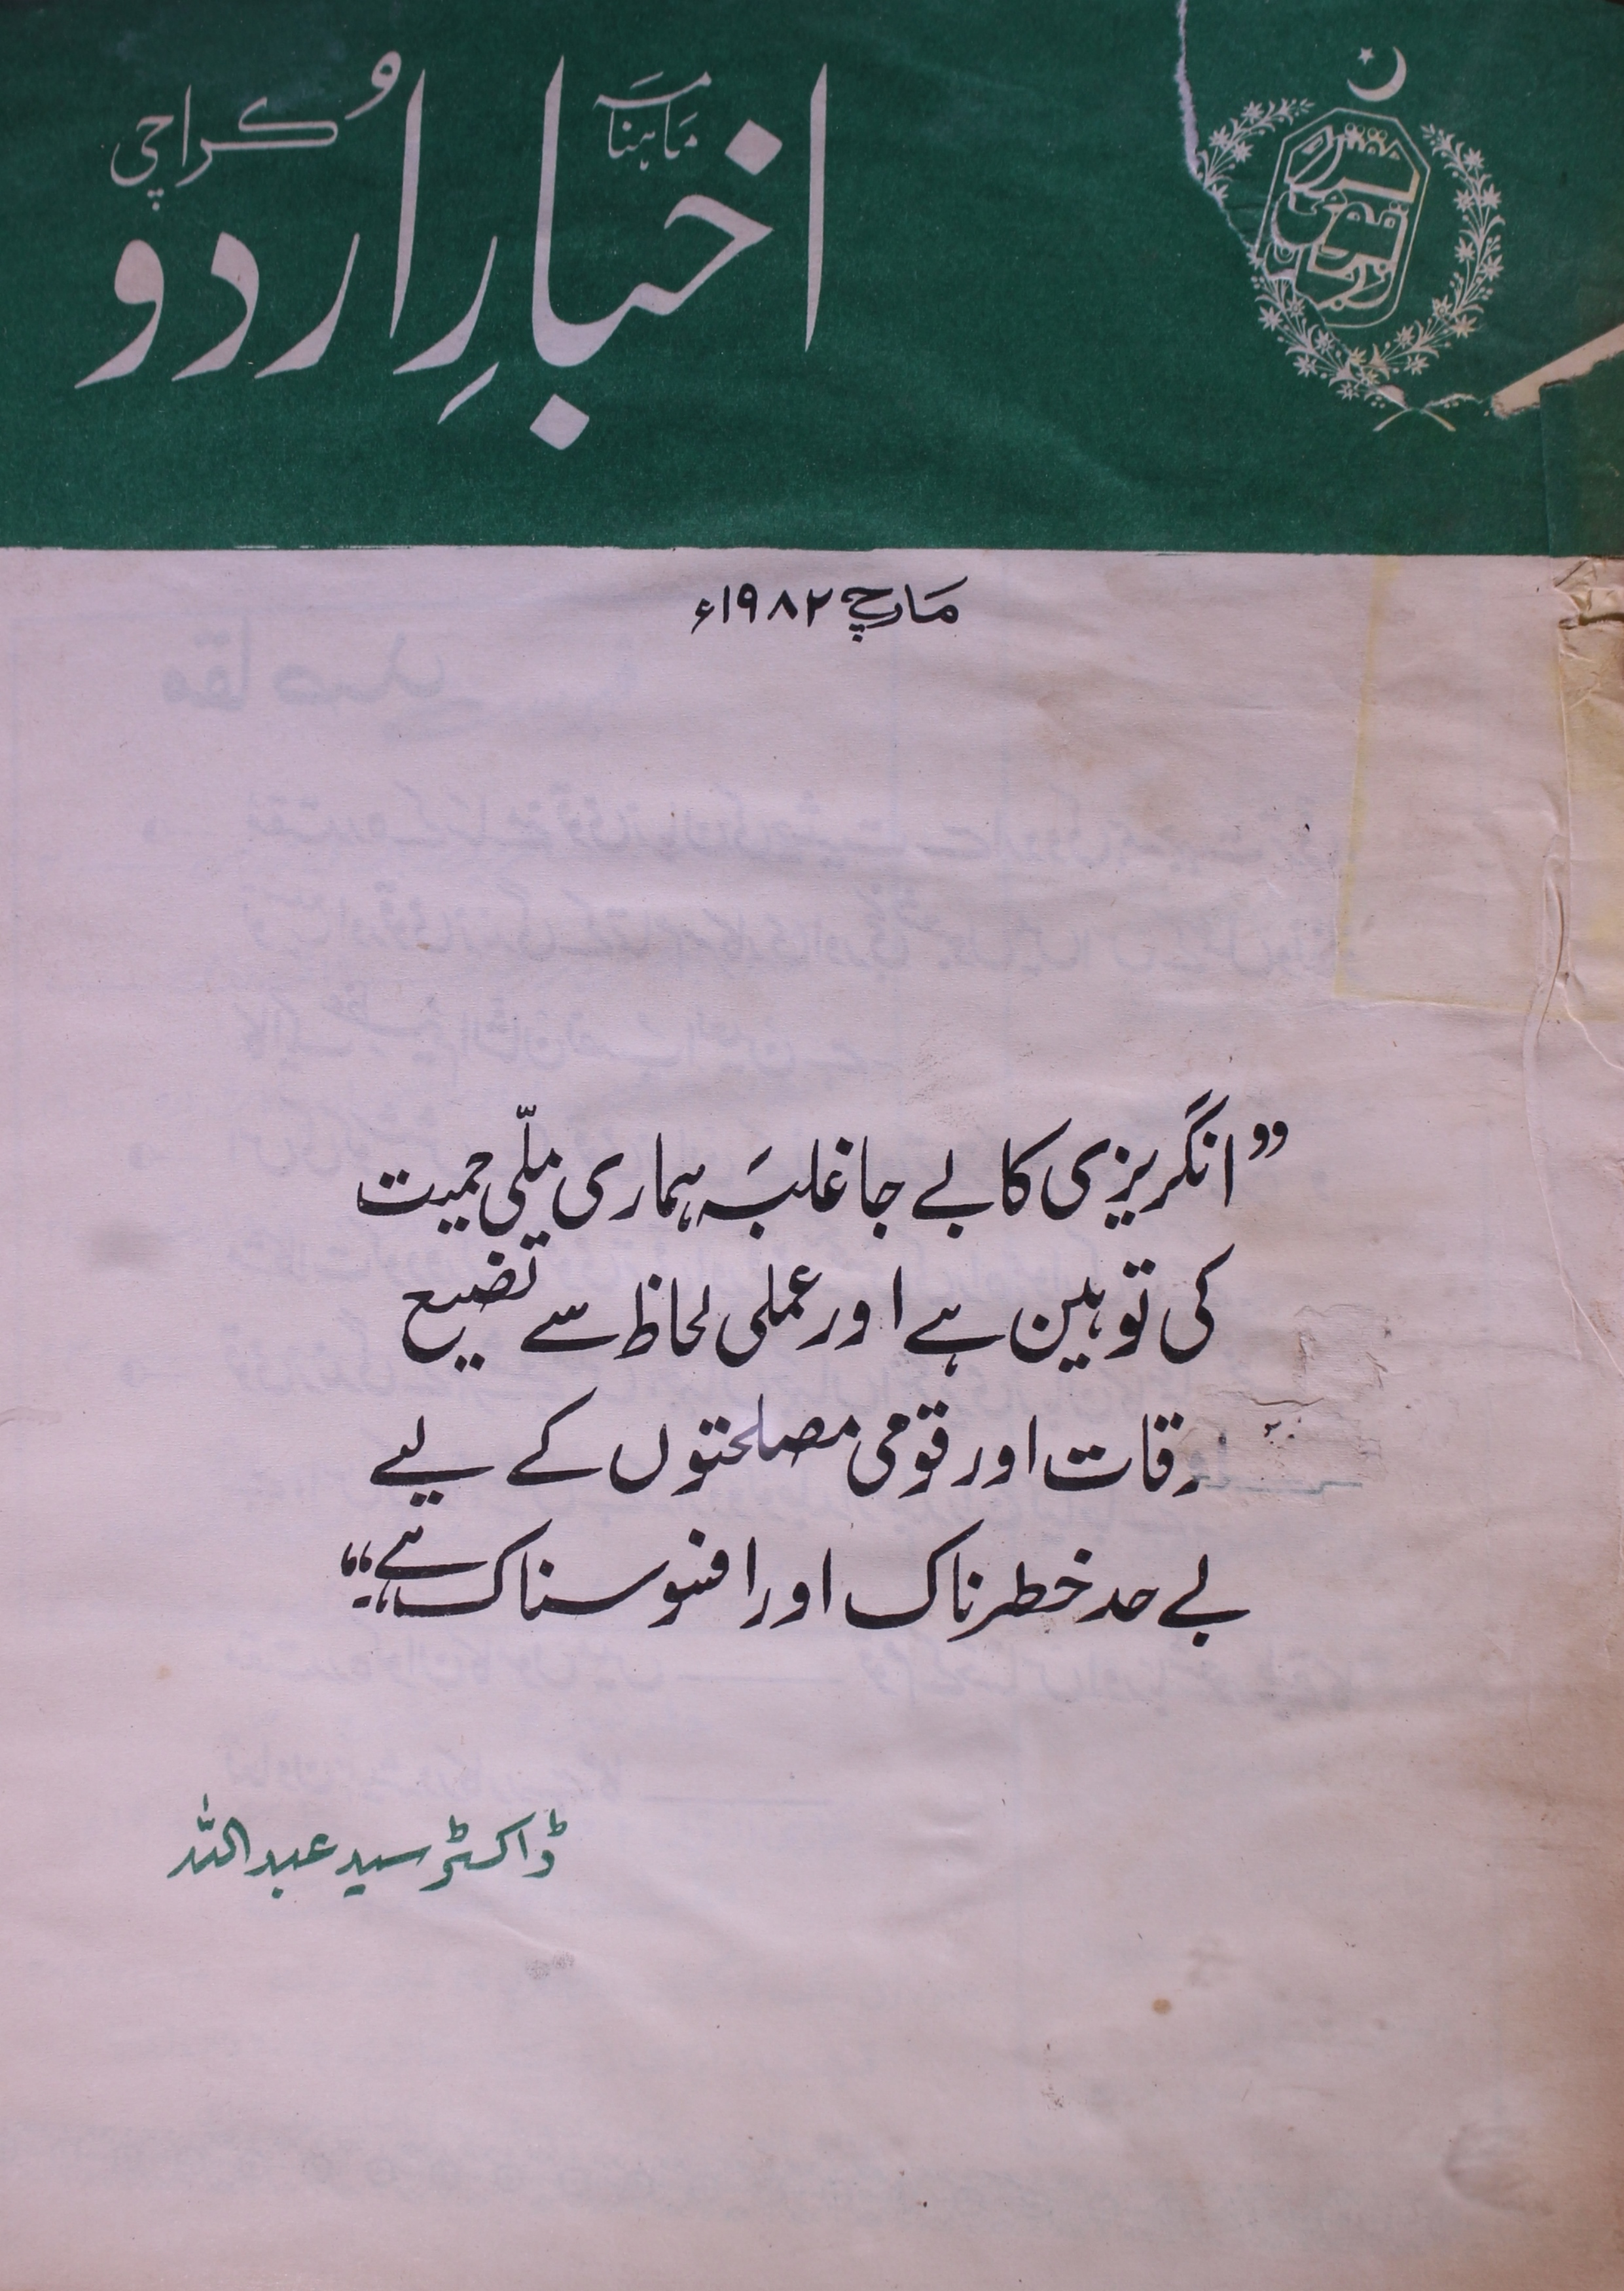 ماہنامہ
اخبارِ اُردو
کراچی
مارچ ۱۹۸۲ء
”انگریزی کا بے جا غلبہ ہماری ملّی حمیت
کی توہین ہے اور عملی لحاظ سے تضیع
اوقات اور قومی مصلحتوں کے لیے
بے حد خطرناک اور افسوسناک ہے“
ڈاکٹر سید عبداللہ